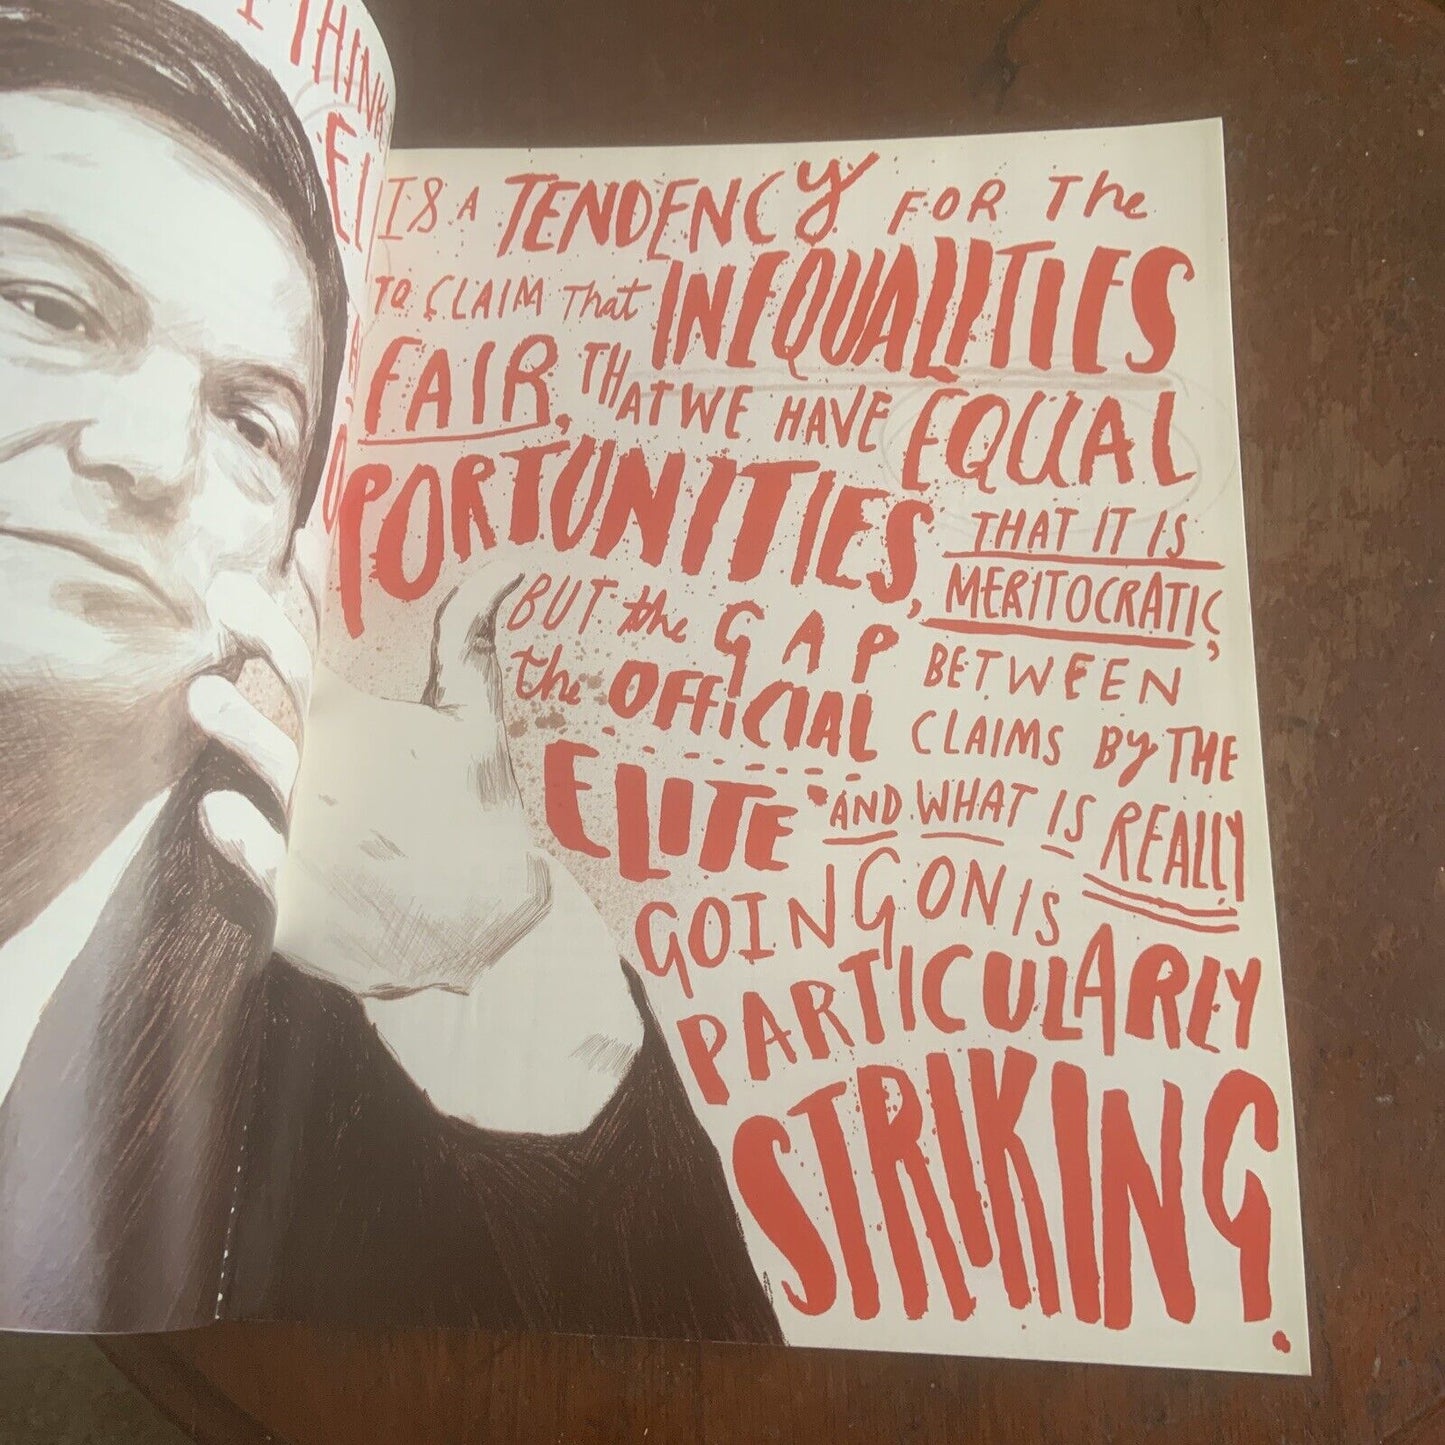 I THINK
IS A TENDENCY FOR THE
TO CLAIM THAT INEQUALITIES
FAIR, THAT WE HAVE EQUAL
OPPORTUNITIES, THAT IT IS
MERITOCRATIC,
BUT the GAP BETWEEN
the OFFICIAL CLAIMS BY THE
ELITE AND WHAT IS REALLY
GOING ON IS
PARTICULARLY
STRIKING.